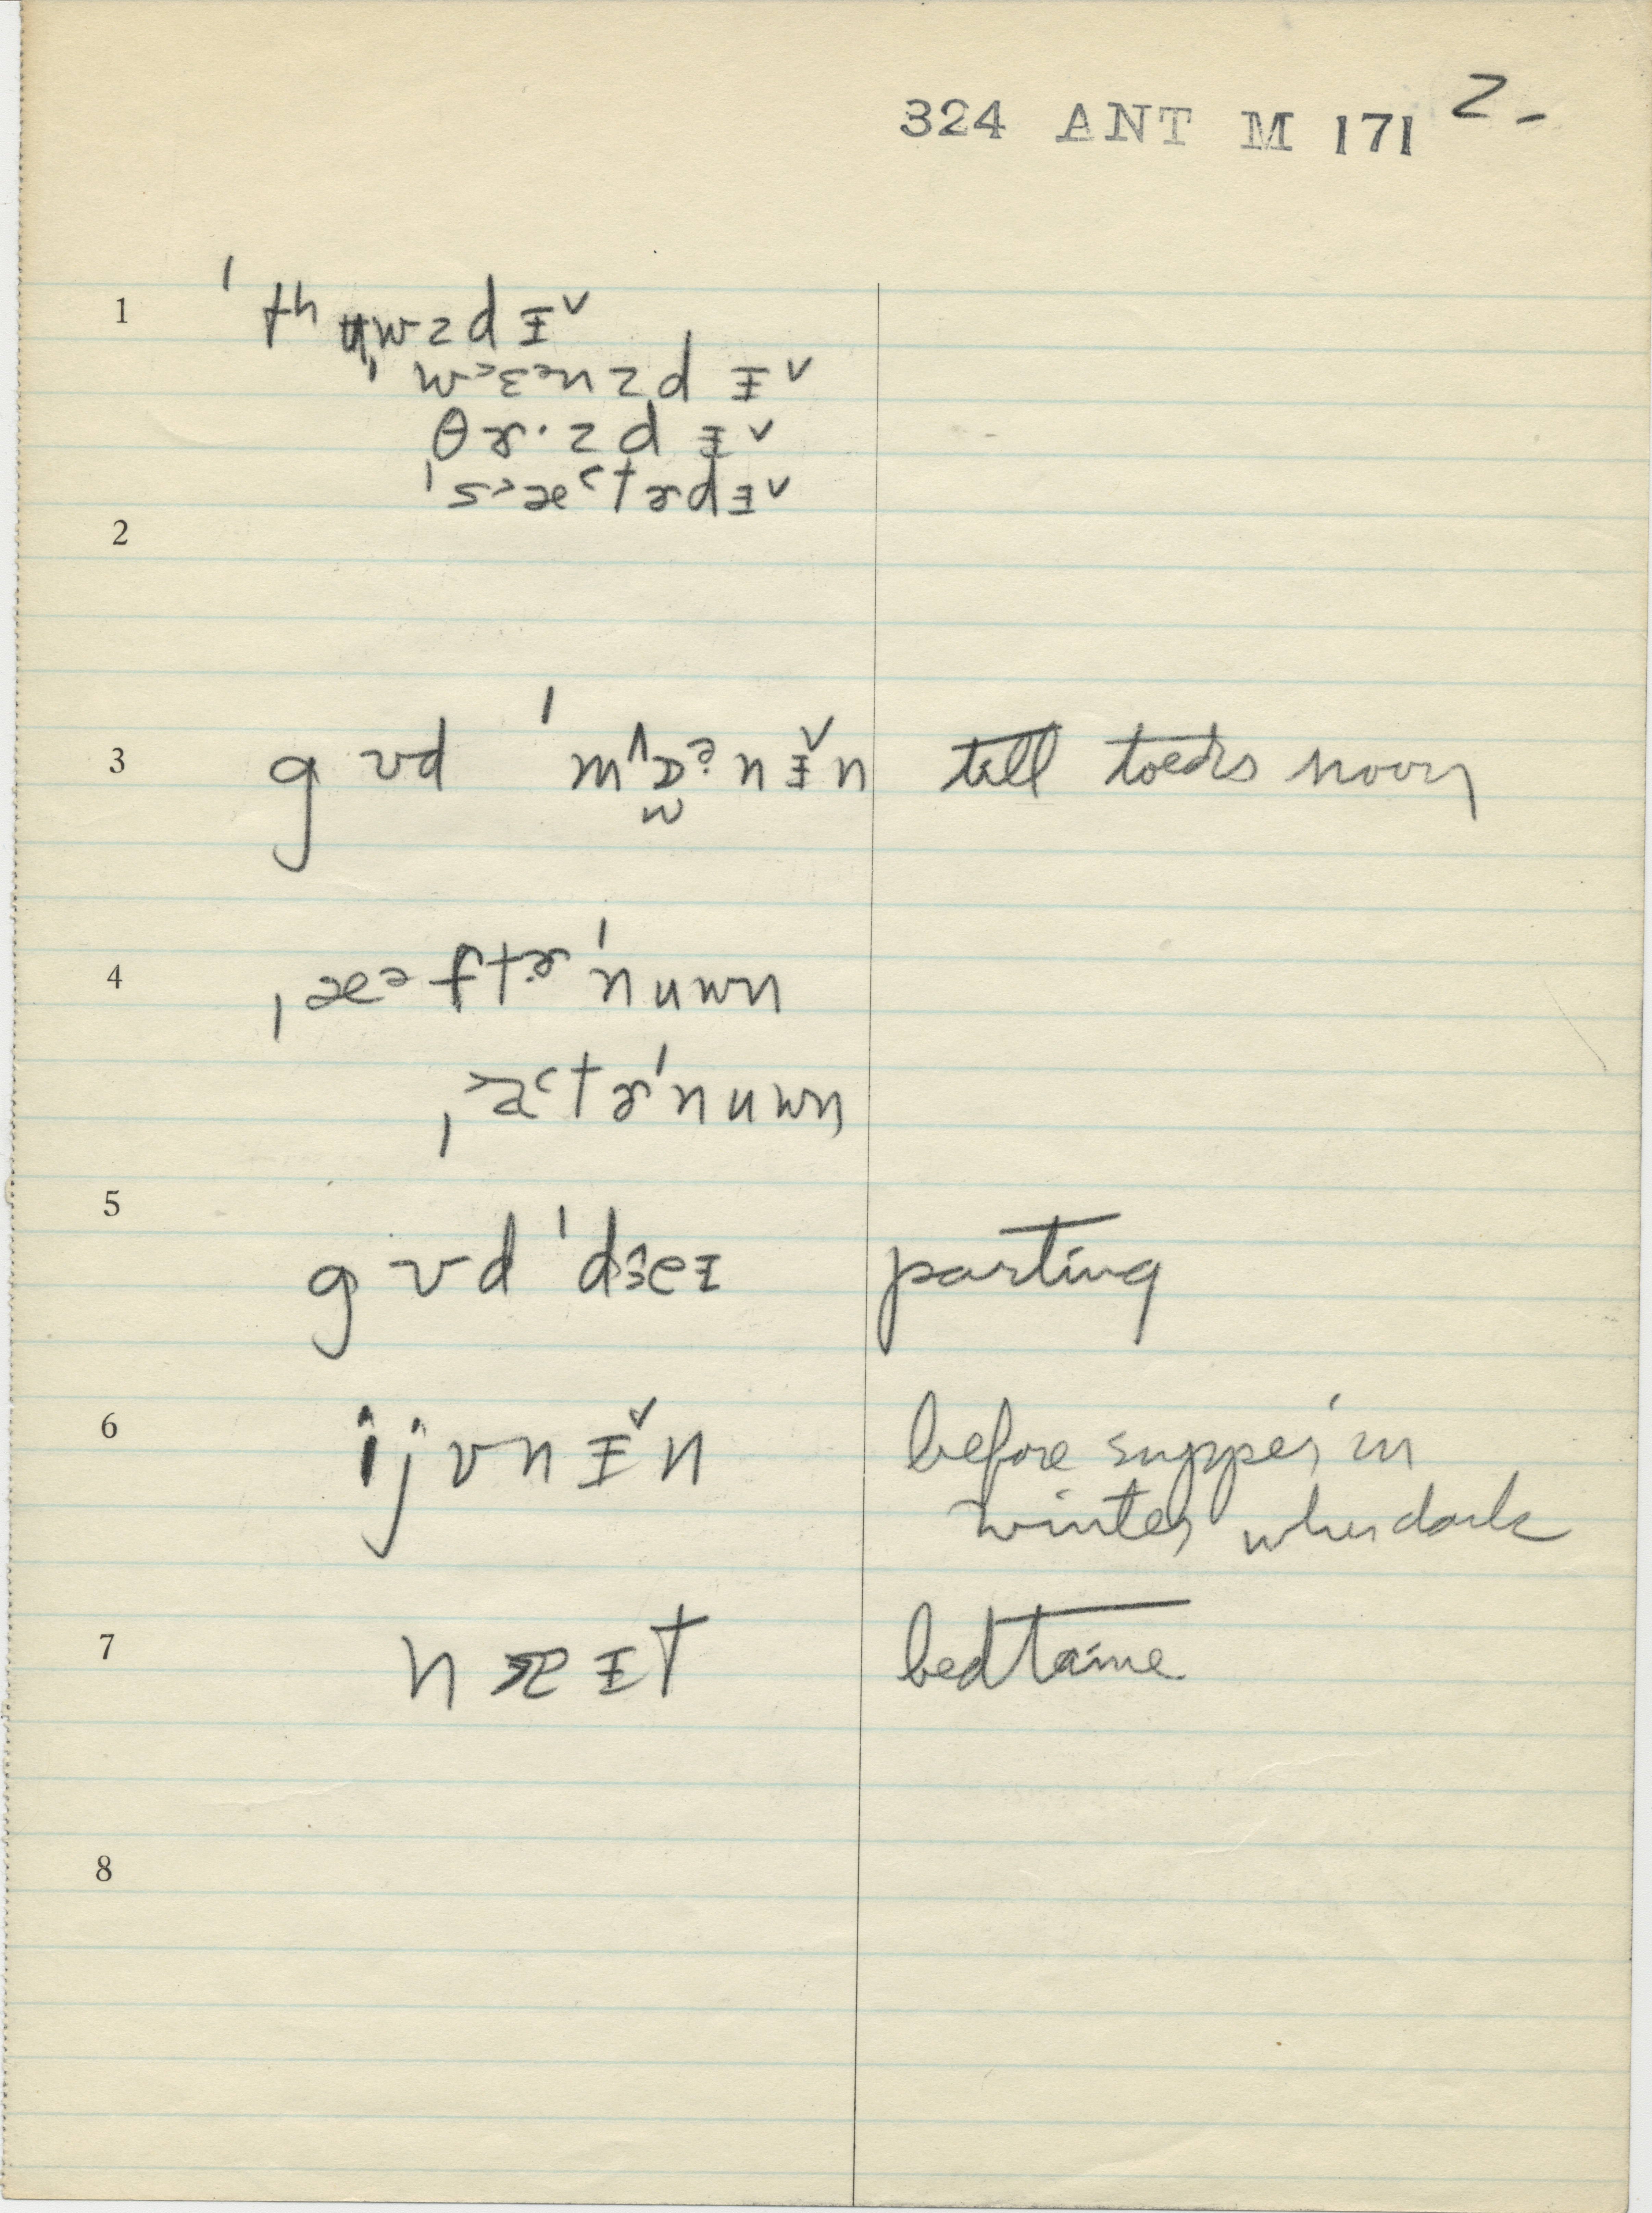 324 ANT M 171 2-
1 ˈth ʉwzdɪ˅
ˌwɛnzdɪ˅
θɚ·zdɪ˅
ˌsætɚdɪ˅
2
3 gʊd ˈmɔɚnɪ˅n till toeds noon
4 ˌæftɚˈnuwn
ˌætɚˈnuwn
5 gʊd ˈdɜeɪ parting
6 ijvnɪ˅n before supper in
winter when dark
7 nɑɪt bedtaime
8